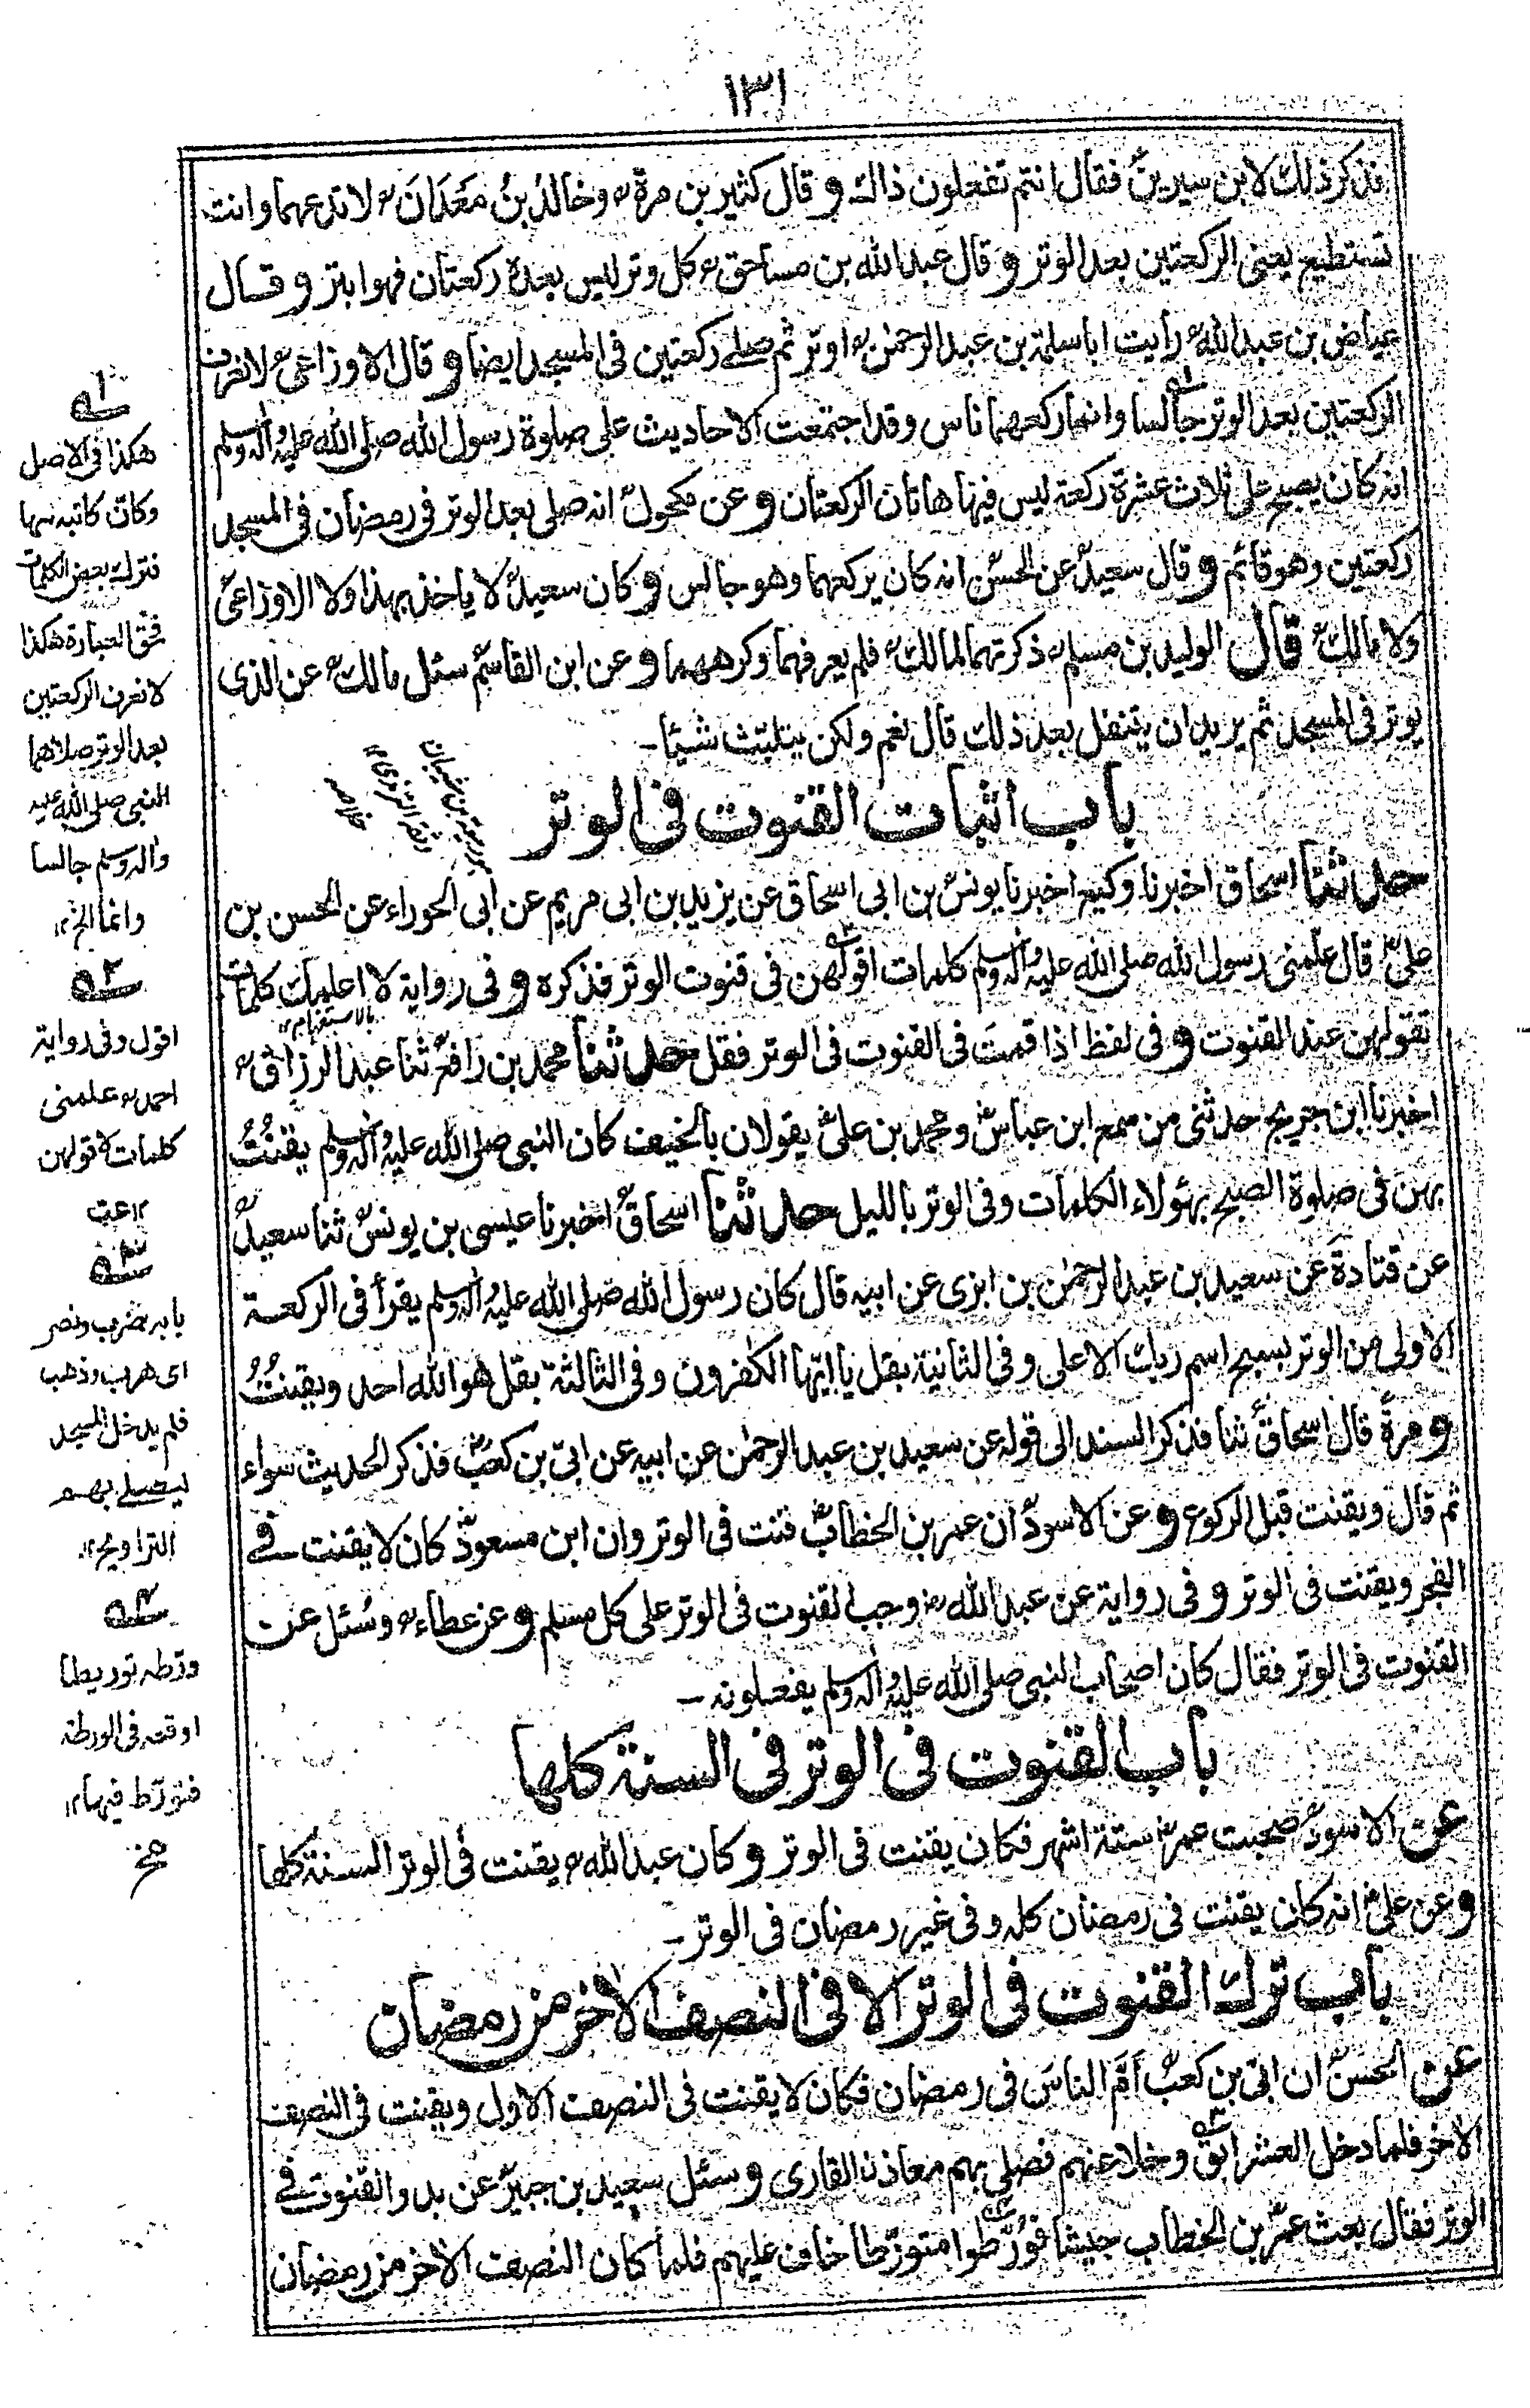 ١٣١
فذكر ذلك لابن سيرين فقال انتم تفعلون ذاك و قال كثير بن مرة و خالد بن معدان لا تدعهما وانت
تستطيع يعني الركعتين بعد الوتر و قال عبد الله بن مساحق كل وتر ليس بعده ركعتان فهو ابتر و قال
عياض بن عبد الله رأيت ابا سلمة بن عبد الرحمٰن اوتر ثم صلے ركعتين فى المسجد ايضا و قال الاوزاعى لا نعرف
الركعتين بعد الوتر جالسا وانما ركعهما ناس وقد اجتمعت الاحاديث على صلوة رسول الله صلى الله عليه واله وسلم
انه كان يصبح على ثلاث عشرة ركعة ليس فيها هاتان الركعتان و عن مكحول انه صلى بعد الوتر فى رمضان فى المسجد
ركعتين وهو قائم و قال سعيد عن الحسن انه كان يركعهما وهو جالس و كان سعيد لا ياخذ بهذا ولا الاوزاعى
ولا مالك قال الوليد بن مسلم ذكرتهما لمالك فلم يعرفهما وكرههما و عن ابن القاسم سئل مالك عن الذى
يوتر فى المسجد ثم يريد ان يتنفل بعد ذلك قال نعم ولكن يتلبث شيئا ـ
باب اثبات القنوت فى الوتر
حدثنا اسحاق اخبرنا وكيع اخبرنا يونس بن ابى اسحاق عن يزيد بن ابى مريم عن ابى الحوراء عن الحسن بن
على قال علمنى رسول الله صلى الله عليه واله وسلم كلمات اقولهن فى قنوت الوتر فذكره و فى رواية لا اعلمك كلمات
بالاستفهام ١٢
تقولهن عند القنوت و فى لفظ اذا قمت فى القنوت فى الوتر فقل حدثنا محمد بن رافع ثنا عبد الرزاق
اخبرنا ابن جريج حدثنى من سمع ابن عباس ومحمد بن على يقولان بالخيف كان النبى صلى الله عليه واله وسلم يقنت
بهن فى صلوة الصبح بهئولاء الكلمات وفى الوتر بالليل حدثنا اسحاق اخبرنا عيسى بن يونس ثنا سعيد
عن قتادة عن سعيد بن عبد الرحمٰن بن ابزى عن ابيه قال كان رسول الله صلى الله عليه واله وسلم يقرأ فى الركعة
الاولى من الوتر بسبح اسم ربك الاعلى وفى الثانية بقل يا ايها الكٰفرون وفى الثالثة بقل هو الله احد ويقنت
و مرة قال اسحاق ثنا فذكر السند الى قوله عن سعيد بن عبد الرحمٰن عن ابيه عن ابى بن كعب فذكر الحديث سواء
ثم قال ويقنت قبل الركوع و عن الاسود ان عمر بن الخطاب قنت فى الوتر وان ابن مسعود كان لا يقنت فے
الفجر ويقنت فى الوتر و فى رواية عن عبد الله وجب القنوت فى الوتر على كل مسلم و عن عطاء وسُئل عن
القنوت فى الوتر فقال كان اصحاب النبى صلى الله عليه واله وسلم يفعلونه ـ
باب القنوت فى الوتر فى السنة كلها
عن الاسود صحبت عمر ستة اشهر فكان يقنت فى الوتر و كان عبد الله يقنت فى الوتر السنة كلها
و عن على انه كان يقنت فى رمضان كله وفى غير رمضان فى الوتر ـ
باب ترك القنوت فى الوتر الا فى النصف الاخر من رمضان
عن الحسن ان ابى بن كعب اَمَّ الناس فى رمضان فكان لا يقنت فى النصف الاول ويقنت فى النصف
الاخر فلما دخل العشر ابق وخلا عنهم فصلى بهم معاذ القارى و سئل سعيد بن جبير عن بدو القنوت فے
الوتر فقال بعث عمر بن الخطاب جيشا فورّطوا متورّطا خاف عليهم فلما كان النصف الاخر من رمضان
١ـه
هكذا فى الاصل
وكان كاتبه سها
فترك بعض الكلمات
فحق العبارة هكذا
لا نعرف الركعتين
بعد الوتر صلاهما
النبى صلى الله عليه
واله وسلم جالسا
وانما الخ ١٢
٢ـه
اقول وفى رواية
احمد علمنى
كلمات اقولهن
١٢ عب
٣ـه
بابه ضرب ونصر
اى هرب وذهب
فلم يدخل المسجد
ليصلے بهم
التراويح ١٢
٤ـه
ورّطه توريطا
اوقعه فى الورطة
فتورّط فيها ١٢